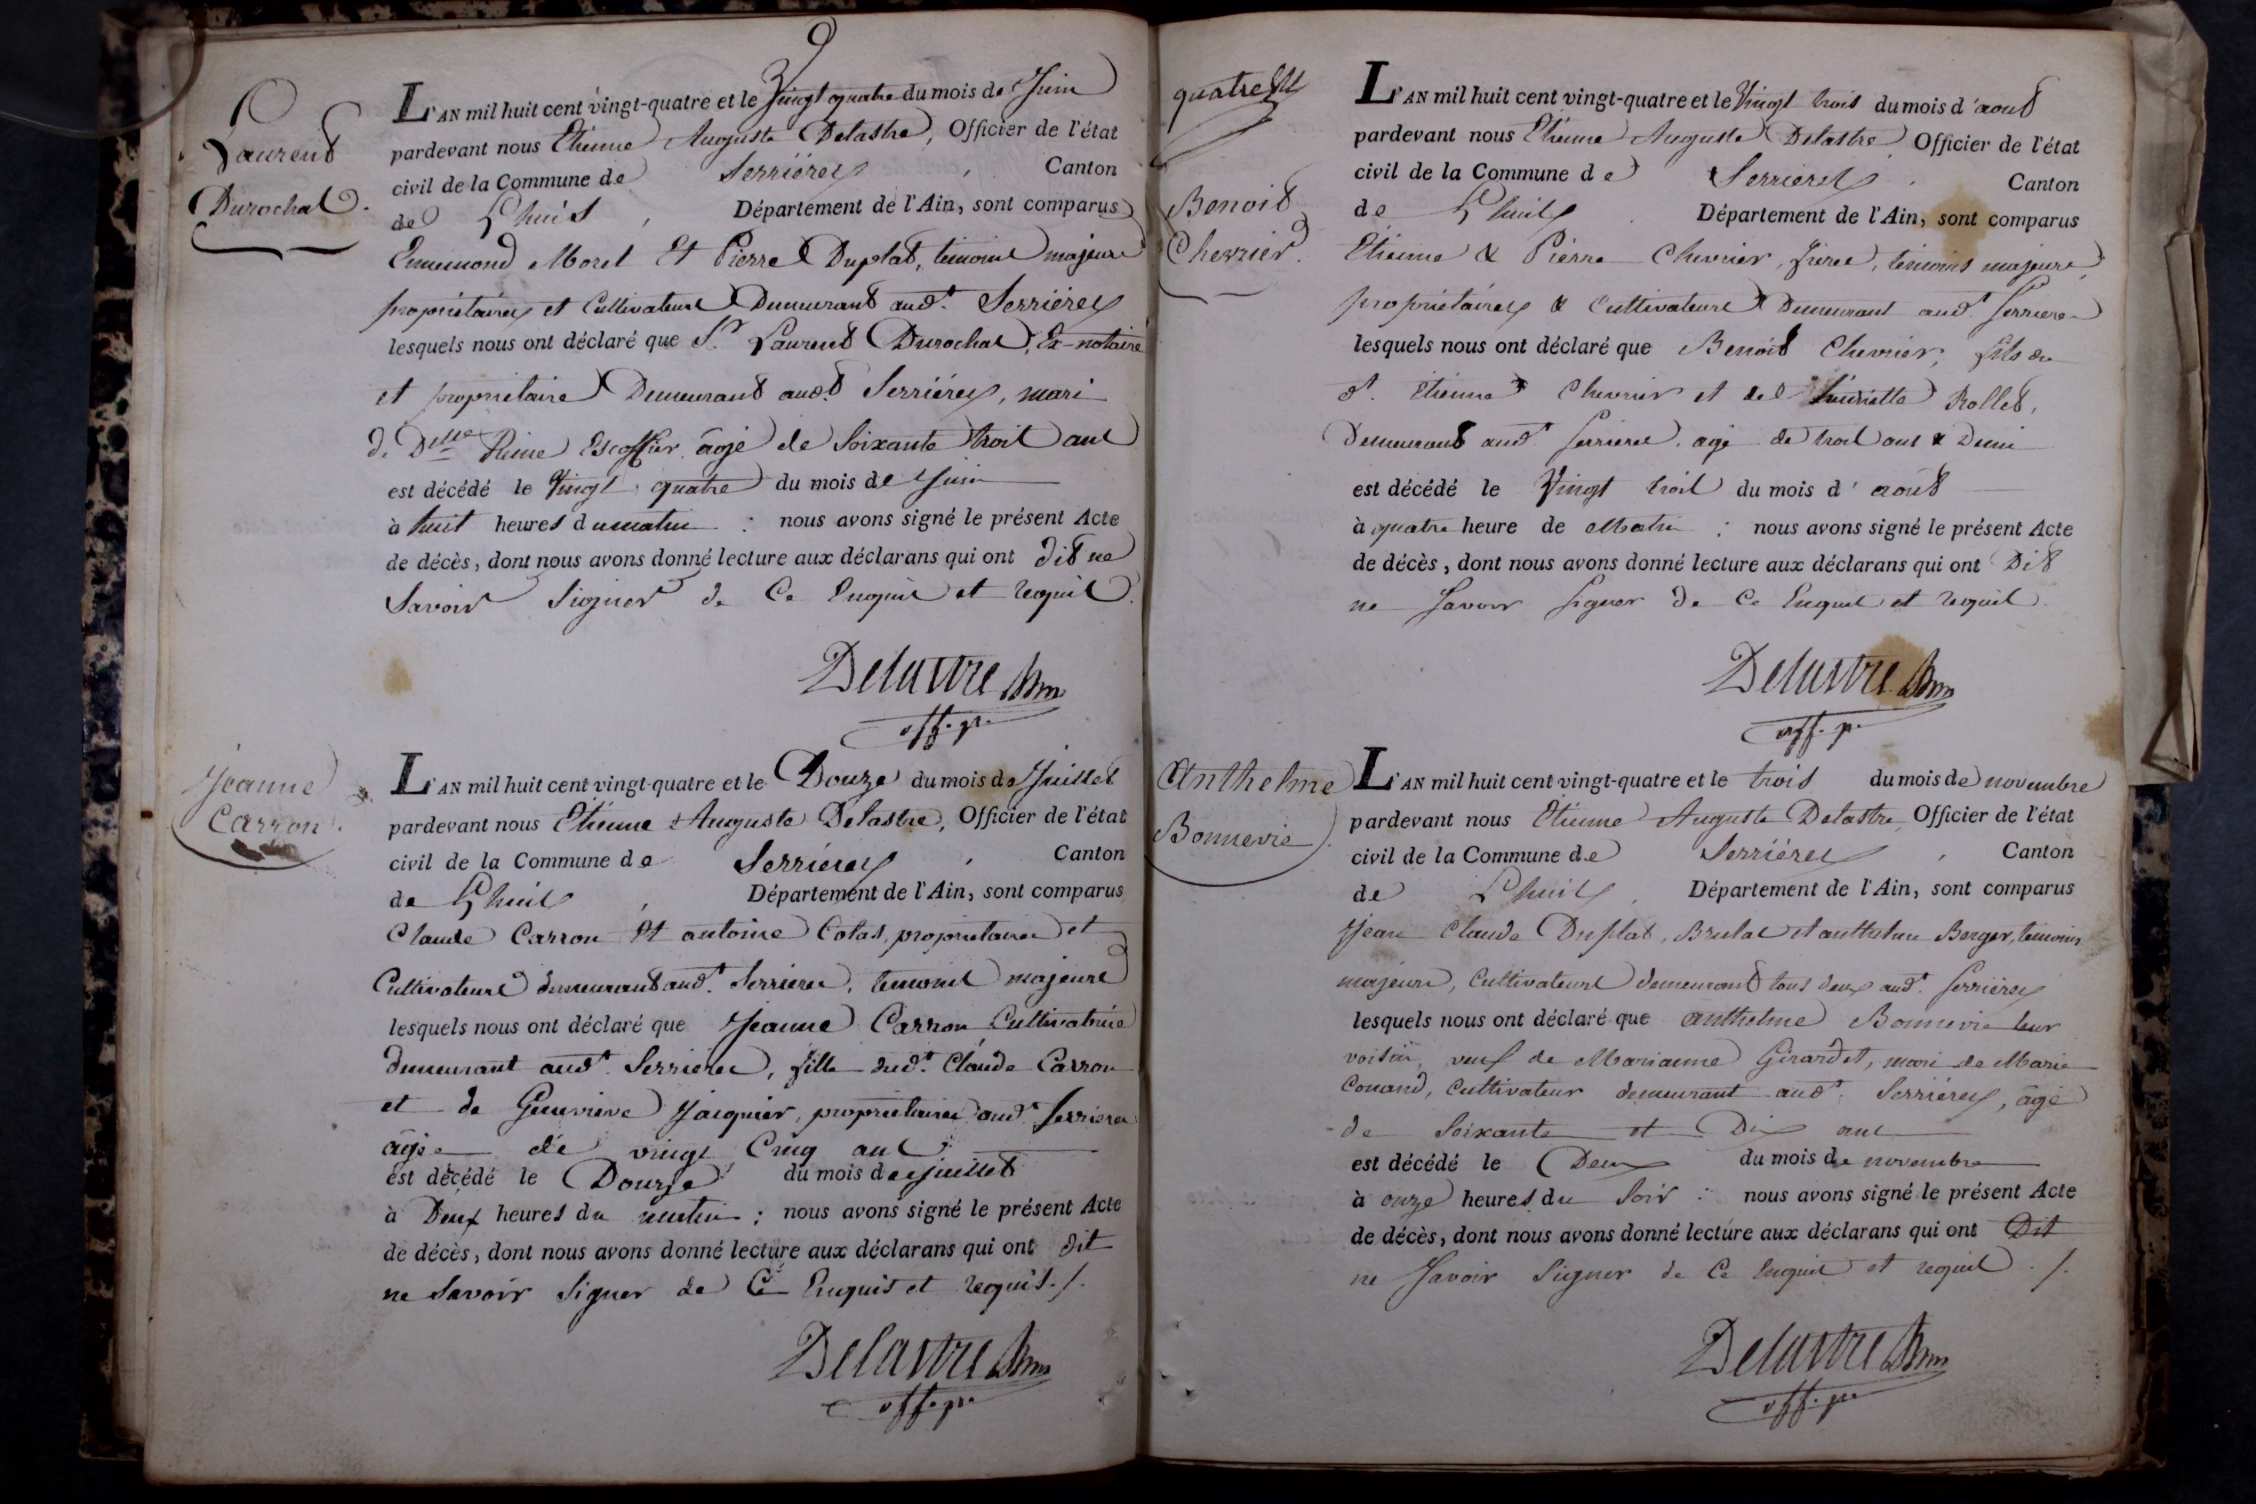 9
Laurent
Durochat.
L'AN mil huit cent vingt-quatre et le vingt quatre du mois de Juin
pardevant nous Etienne Auguste Delastre, Officier de l'état
civil de la Commune de Serrières, Canton
de Lhuis, Département de l'Ain, sont comparus
Ennemond Morel Et Pierre Duplat, temoins majeurs
propriétaires et Cultivateurs Demeurant aud.t Serrières
lesquels nous ont déclaré que S.r Laurent Durochat, Ex-notaire
et propriétaire Demeurant aud.t Serrières, mari
de D.lle Reine Escoffier, âgé de Soixante trois ans
est décédé le Vingt quatre du mois de Juin
à huit heures du matin : nous avons signé le présent Acte
de décès, dont nous avons donné lecture aux déclarans qui ont dit ne
Savoir Signer de Ce Enquis et requis.
Delastre
off. p.
Jeanne
Carron.
L'AN mil huit cent vingt-quatre et le Douze du mois de Juillet
pardevant nous Etienne Auguste Delastre, Officier de l'état
civil de la Commune de Serrières, Canton
de Lhuis, Département de l'Ain, sont comparus
Claude Carron Et antoine Colas, propriétaires et
Cultivateurs demeurant aud.t Serrières, temoins majeurs
lesquels nous ont déclaré que Jeanne Carron Cultivatrice
demeurant aud.t Serrières, fille dud.t Claude Carron
et de Genevieve Jacquier, propriétaires aud.t Serrières
âgée de vingt Cinq ans
est décédé le Douze du mois de juillet
à Deux heures du matin ; nous avons signé le présent Acte
de décès, dont nous avons donné lecture aux déclarans qui ont dit
ne Savoir Signer de Ce Enquis et requis./.
Delastre
off. p.
quatre
Benoit
Chevrier.
L'AN mil huit cent vingt-quatre et le Vingt trois du mois d'aout
pardevant nous Etienne Auguste Delastre Officier de l'état
civil de la Commune de Serrières. Canton
de Lhuis. Département de l'Ain, sont comparus
Etienne & Pierre Chevrier, frères, temoins majeurs,
propriétaires & Cultivateurs Demeurant aud.t Serrieres
lesquels nous ont déclaré que Benoit Chevrier, fils du
d.t Etienne Chevrier et de Rollet,
Demeurant aud.t Serrieres, age de trois ans & Demi
est décédé le Vingt trois du mois d'aout
à quatre heure de Matin : nous avons signé le présent Acte
de décès, dont nous avons donné lecture aux déclarans qui ont Dit
ne Savoir Signer de Ce Enquis et requis.
Delastre
off. p.
Anthelme
Bonnevie.
L'AN mil huit cent vingt-quatre et le trois du mois de novembre
pardevant nous Etienne Auguste Delastre, Officier de l'état
civil de la Commune de Serrières, Canton
de Lhuis. Département de l'Ain, sont comparus
Jean Claude Duplat, Brulas et anthelme Berger, temoins
majeurs, Cultivateurs demeurant tous deux aud.t Serrières
lesquels nous ont déclaré que anthelme Bonnevie leur
voisin, veuf de Marianne Girardet, mari de Marie
Couand, Cultivateur demeurant aud.t Serrières, âgé
de Soixante et Dix ans
est décédé le Deux du mois de novembre
à onze heures du Soir : nous avons signé le présent Acte
de décès, dont nous avons donné lecture aux déclarans qui ont Dit
ne Savoir Signer de Ce Enquis et requis./.
Delastre
off. p.